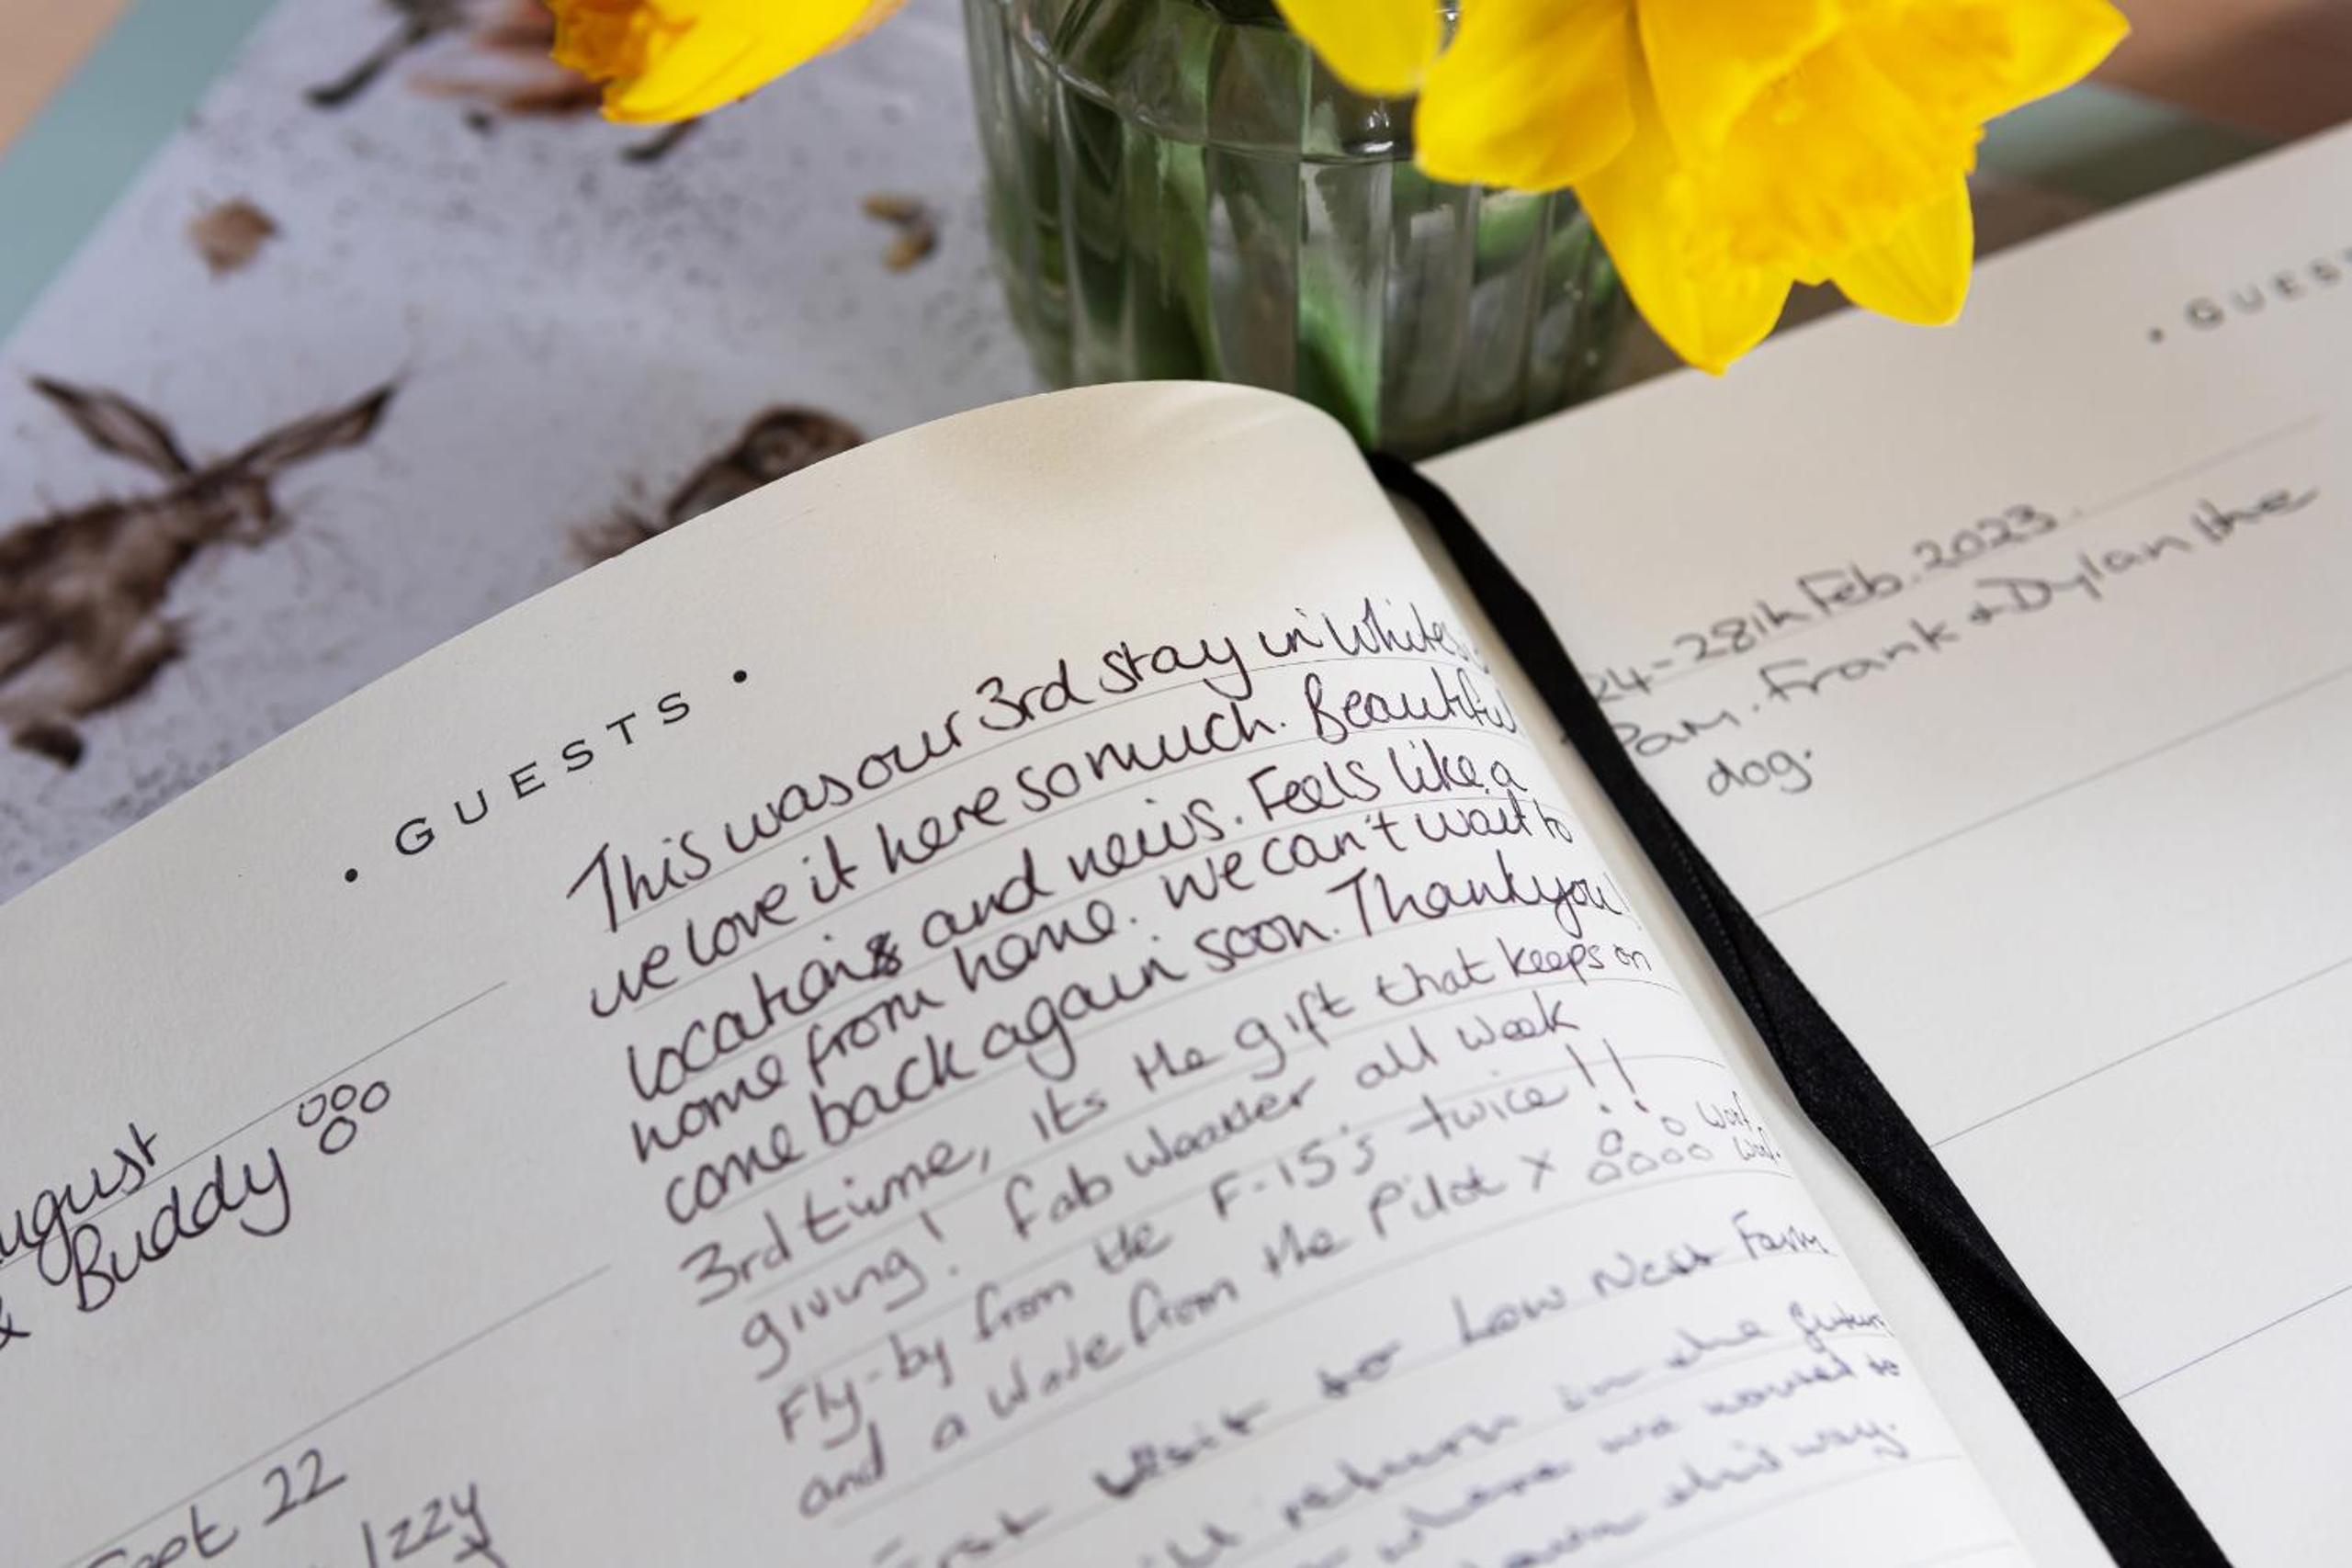 • GUESTS •
ugust
& Buddy
Sept 22
Izzy
This was our 3rd stay in Whites
we love it here so much. Beautiful
locations and neiws. Feels like a
home from home. We can't wait to
come back again soon. Thankyou!
3rd time, its the gift that keeps on
giving! Fab weather all week
Fly-by from the F-15's twice!!
and a wave from the Pilot X woof
woof
First visit to Low Nest Farm
will return in the future
where we wanted to
this way.
• GUEST
24-28th Feb. 2023.
Pam. Frank & Dylan the
dog.